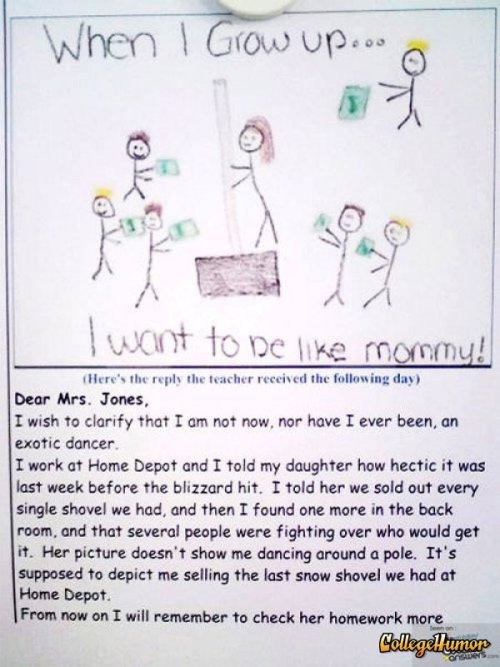 When I Grow up...
I want to be like mommy!
(Here's the reply the teacher received the following day)
Dear Mrs. Jones,
I wish to clarify that I am not now, nor have I ever been, an
exotic dancer.
I work at Home Depot and I told my daughter how hectic it was
last week before the blizzard hit. I told her we sold out every
single shovel we had, and then I found one more in the back
room, and that several people were fighting over who would get
it. Her picture doesn't show me dancing around a pole. It's
supposed to depict me selling the last snow shovel we had at
Home Depot.
From now on I will remember to check her homework more
Seen on
CollegeHumor
answers